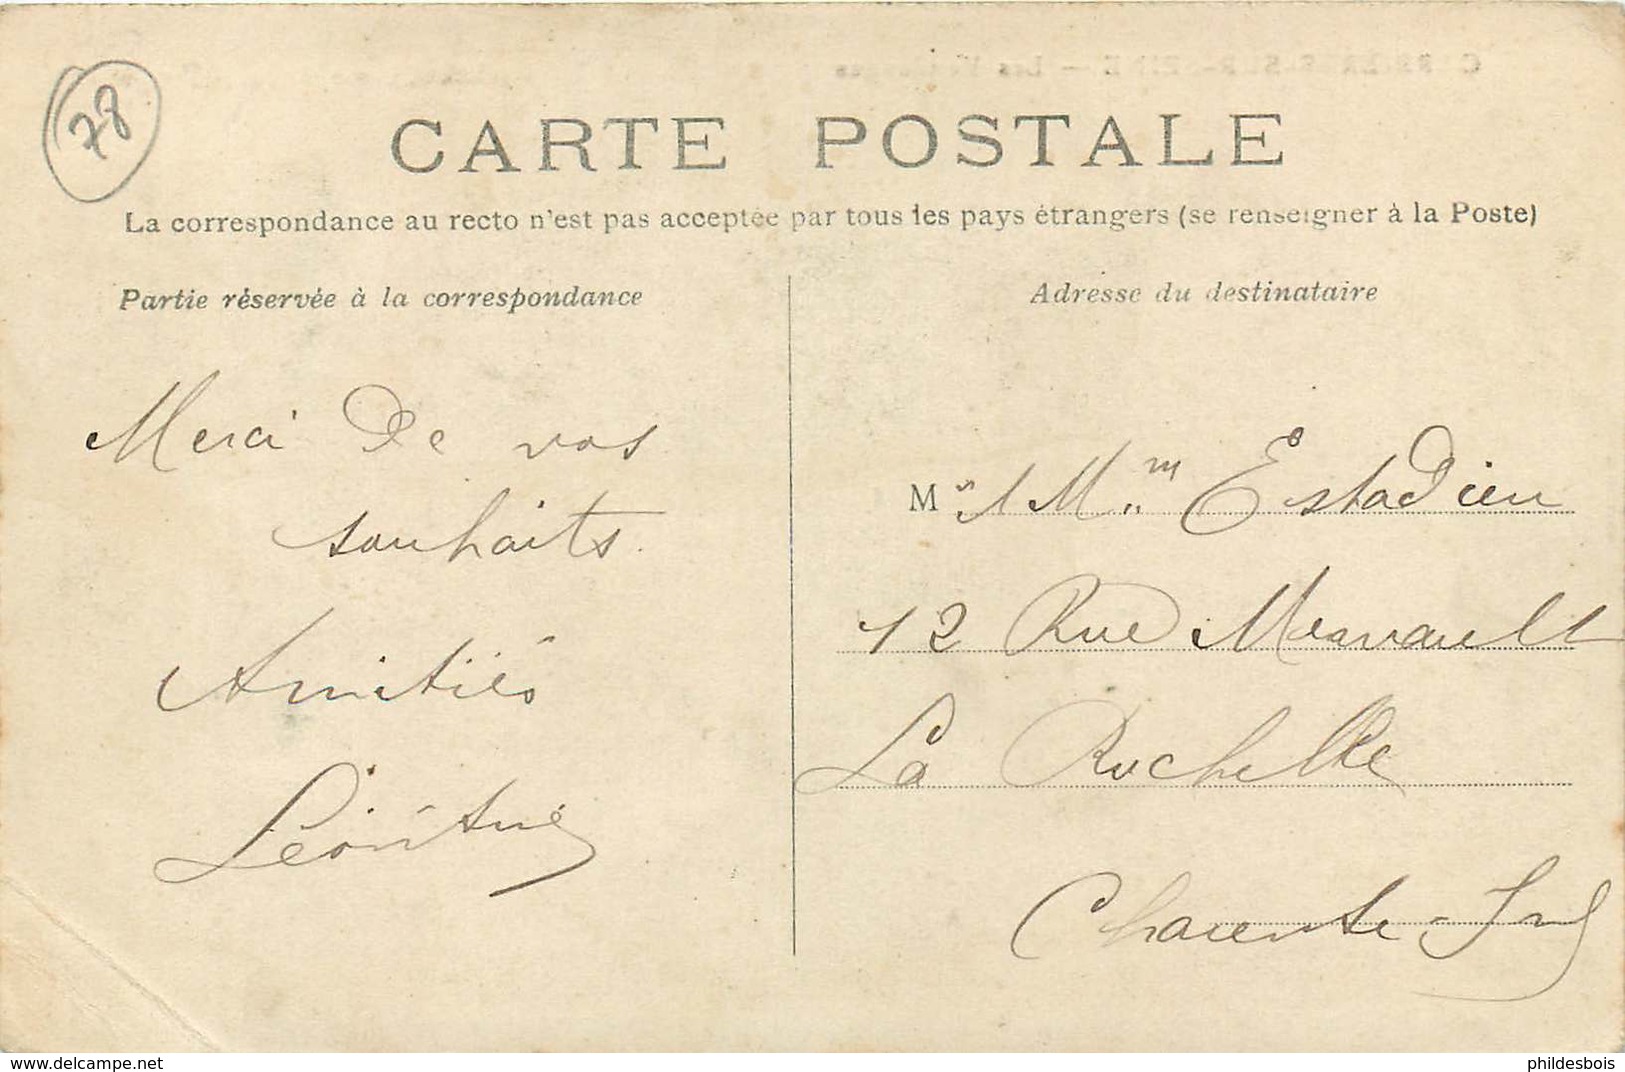 78
CARTE POSTALE
La correspondance au recto n'est pas acceptée par tous les pays étrangers (se renseigner à la Poste)
Partie réservée à la correspondance
Adresse du destinataire
Merci de vos
souhaits.
Amitiés
Léontine
M
Estadieu
12 Rue
La Rochelle
Charente-Inf
https://www.delcampe.net
phildesbois